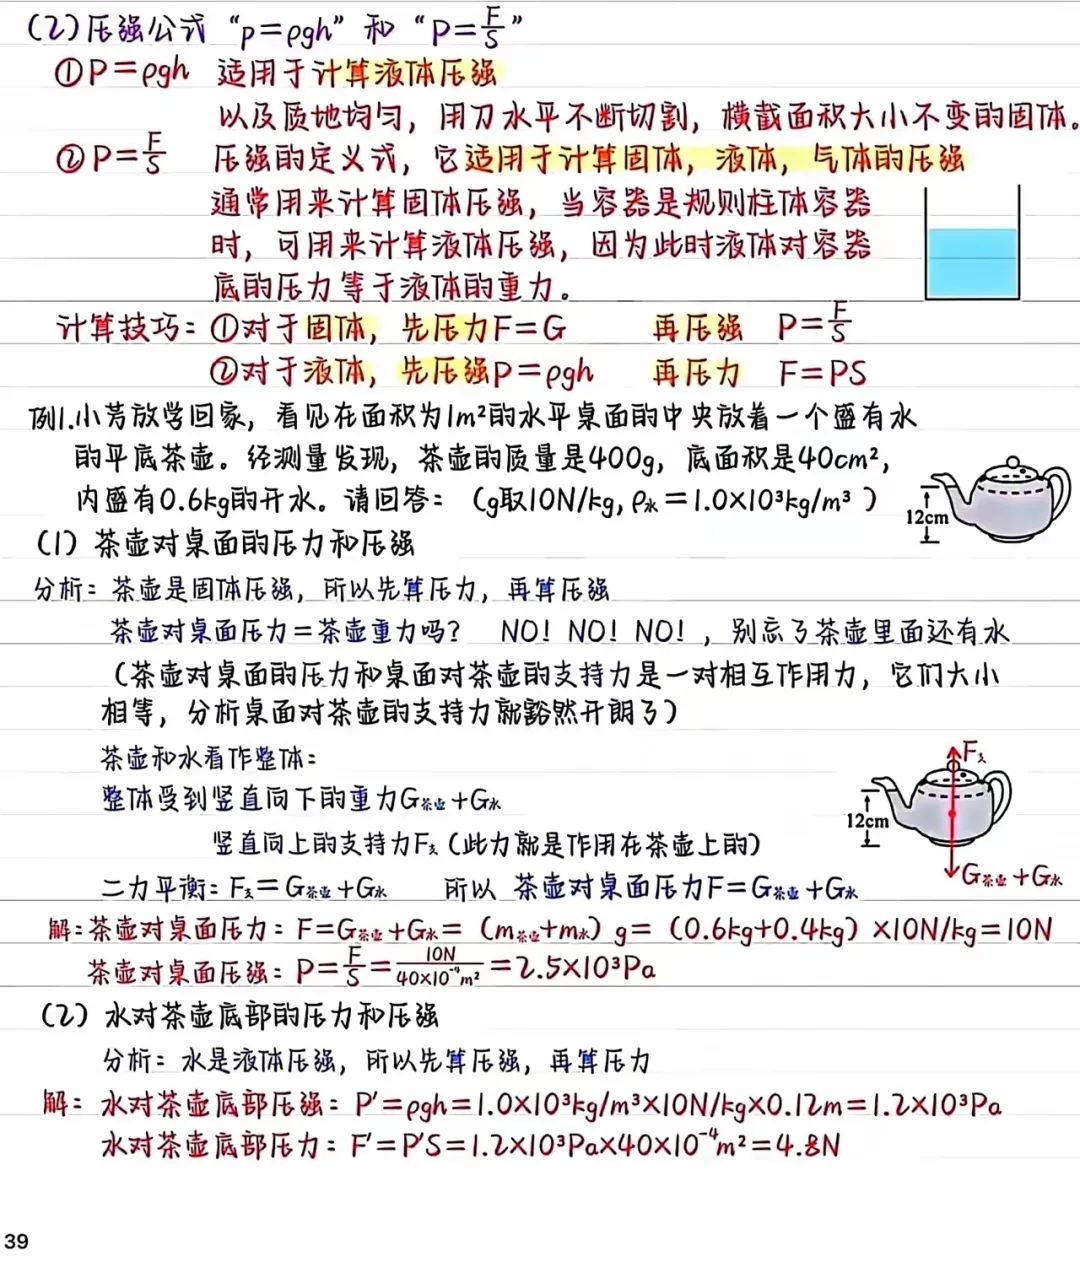 (2)压强公式“p=ρgh”和“P=F/S”
①P=ρgh 适用于计算液体压强
以及质地均匀，用刀水平不断切割，横截面积大小不变的固体。
②P=F/S 压强的定义式，它适用于计算固体，液体，气体的压强
通常用来计算固体压强，当容器是规则柱体容器
时，可用来计算液体压强，因为此时液体对容器
底的压力等于液体的重力。
计算技巧：①对于固体，先压力F=G 再压强 P=F/S
②对于液体，先压强P=ρgh 再压力 F=PS
例1.小芳放学回家，看见在面积为1m²的水平桌面的中央放着一个盛有水
的平底茶壶。经测量发现，茶壶的质量是400g，底面积是40cm²，
内盛有0.6kg的开水。请回答：(g取10N/kg,ρ水=1.0×10³kg/m³)
12cm
(1) 茶壶对桌面的压力和压强
分析：茶壶是固体压强，所以先算压力，再算压强
茶壶对桌面压力=茶壶重力吗？ NO！NO！NO！，别忘了茶壶里面还有水
(茶壶对桌面的压力和桌面对茶壶的支持力是一对相互作用力，它们大小
相等，分析桌面对茶壶的支持力就豁然开朗了)
茶壶和水看作整体：
整体受到竖直向下的重力G茶壶+G水
竖直向上的支持力F支(此力就是作用在茶壶上的)
F支
12cm
G茶壶+G水
二力平衡：F支=G茶壶+G水 所以 茶壶对桌面压力F=G茶壶+G水
解：茶壶对桌面压力：F=G茶壶+G水=(m茶壶+m水)g=(0.6kg+0.4kg)×10N/kg=10N
茶壶对桌面压强：P=F/S=10N/40×10⁻⁴m²=2.5×10³Pa
(2) 水对茶壶底部的压力和压强
分析：水是液体压强，所以先算压强，再算压力
解：水对茶壶底部压强：P'=ρgh=1.0×10³kg/m³×10N/kg×0.12m=1.2×10³Pa
水对茶壶底部压力：F'=P'S=1.2×10³Pa×40×10⁻⁴m²=4.8N
39